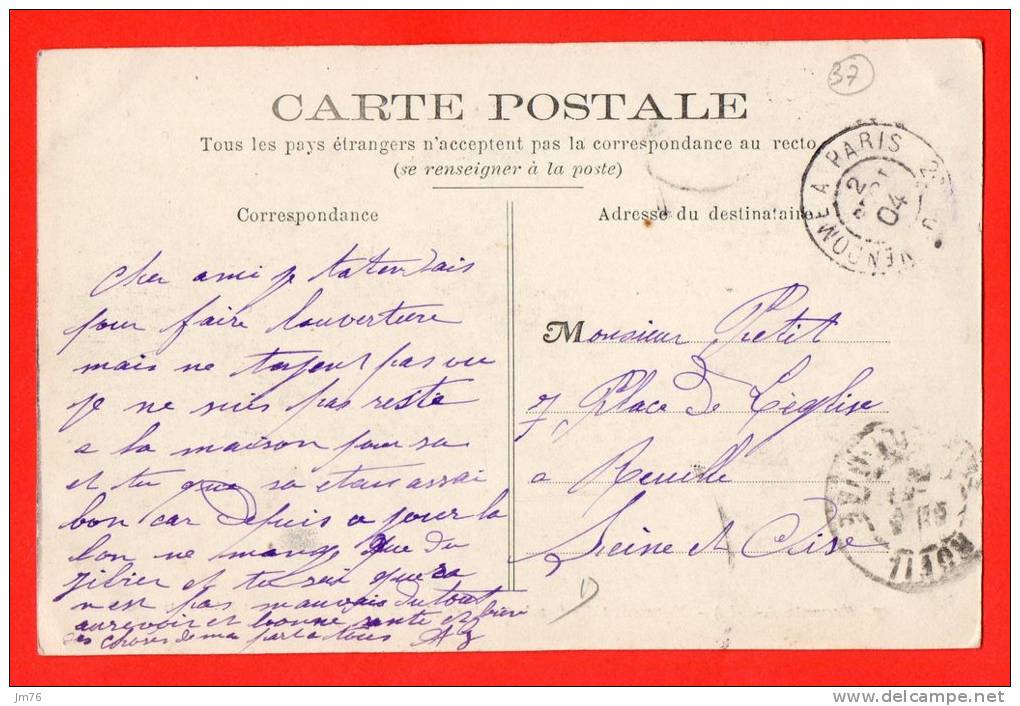 37
CARTE POSTALE
Tous les pays étrangers n'acceptent pas la correspondance au recto
(se renseigner à la poste)
VENDOME A PARIS
2
04
Correspondance
Cher ami je tatendais
pour faire louverture
mais ne tayent pas vu
je ne suis pas resté
a la maison pour sa
et tu que sa etait assai
bon car depuis a pour la
bon ne mange que du
gibier et tu sai que sa
n'est pas mauvais du tout
aurevoir et bonne sante et bien
des choses de ma part a tous
Adresse du destinataire
Monsieur Petit
7, Place de L'église
a Reuille
Seine et Oise
RUEIL
jm76
www.delcampe.net